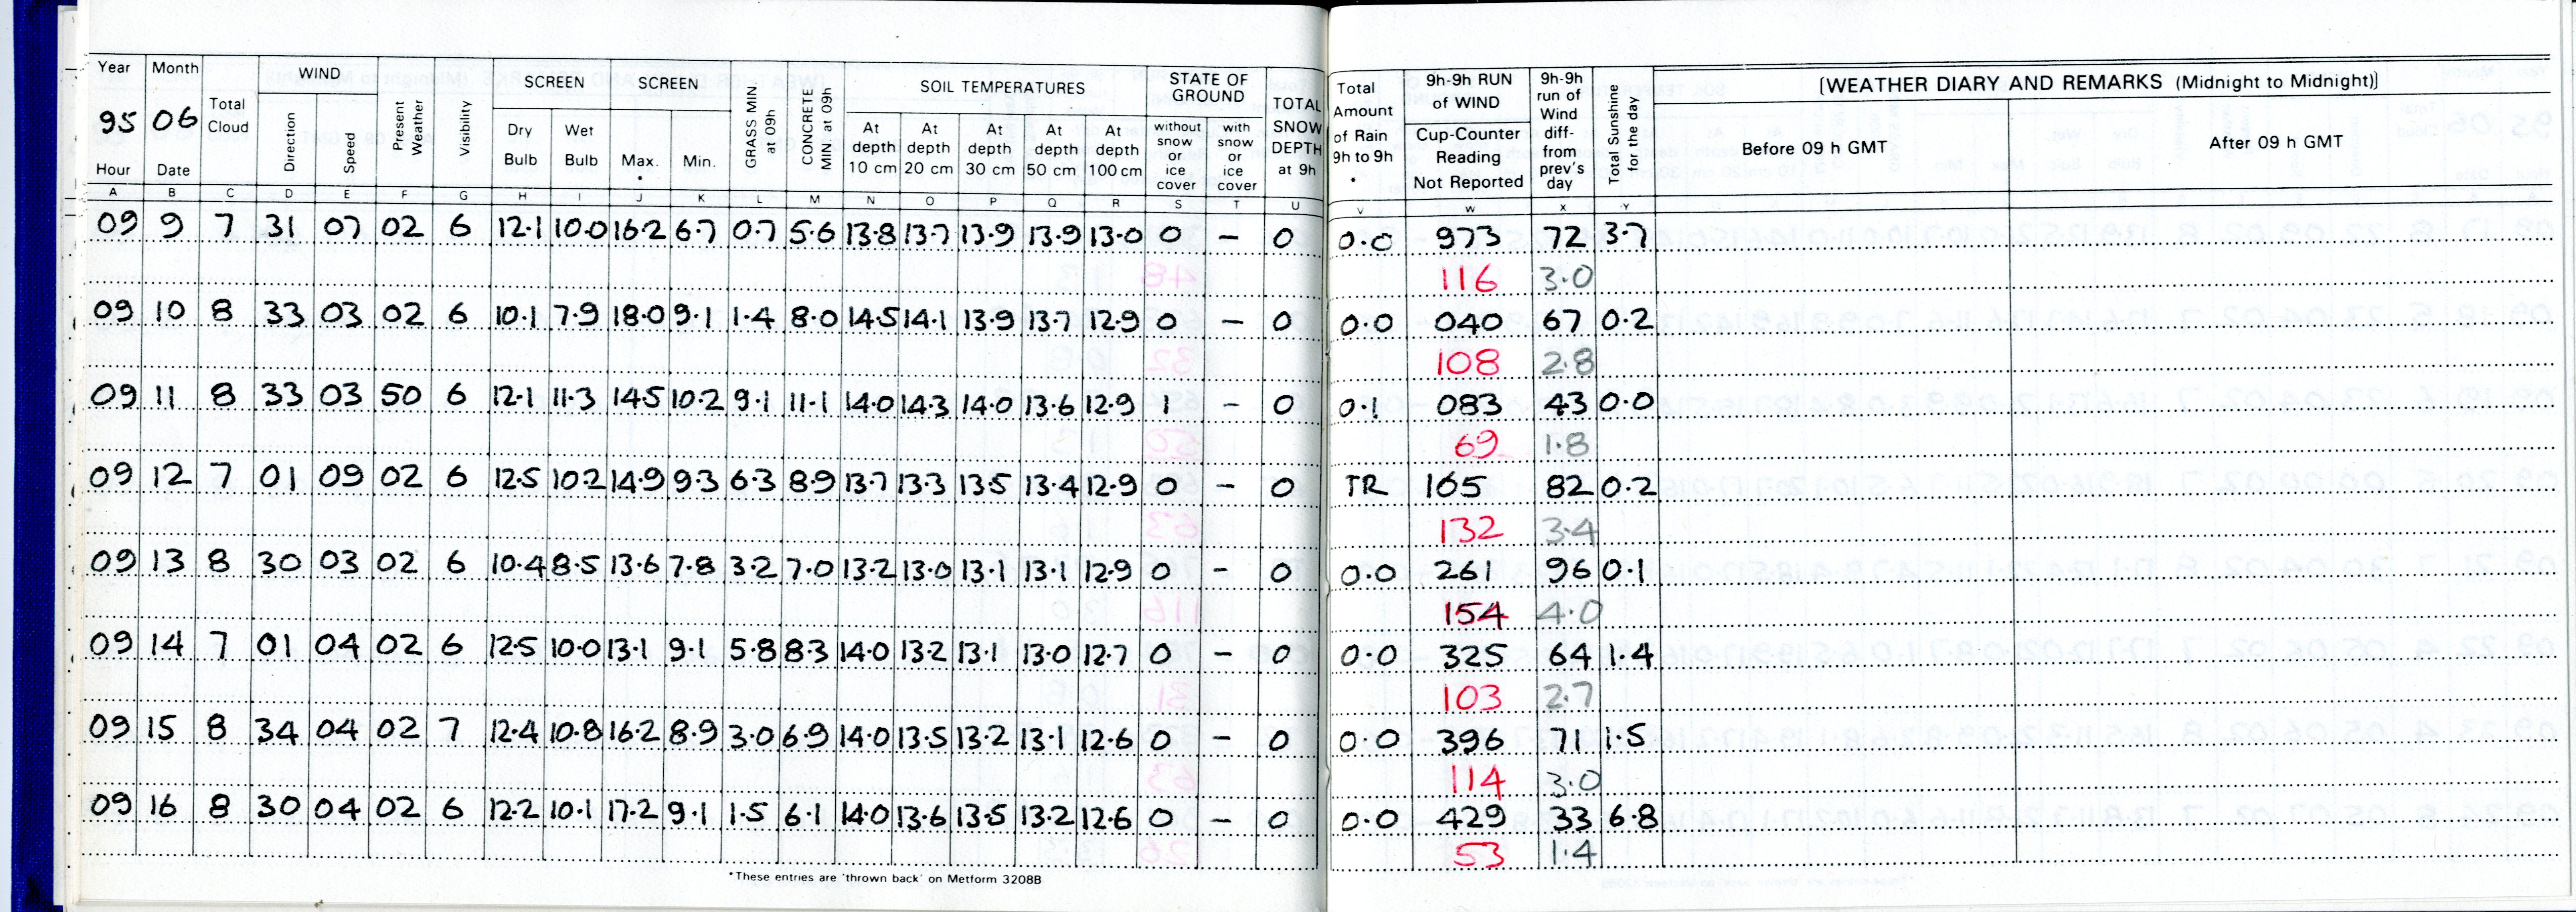 Year Month Total Cloud WIND Direction Speed Present Weather Visibility SCREEN Dry Bulb Wet Bulb SCREEN Max. * Min. GRASS MIN. at 09h CONCRETE MIN. at 09h SOIL TEMPERATURES At depth 10 cm At depth 20 cm At depth 30 cm At depth 50 cm At depth 100 cm STATE OF GROUND without snow or ice cover with snow or ice cover TOTAL SNOW DEPTH at 9h Total Amount of Rain 9h to 9h * 9h-9h RUN of WIND Cup-Counter Reading Not Reported 9h-9h run of Wind diff- from prev's day Total Sunshine for the day [WEATHER DIARY AND REMARKS (Midnight to Midnight)] Before 09 h GMT After 09 h GMT
95 06
Hour Date
A B C D E F G H I J K L M N O P Q R S T U V W X Y
09 9 7 31 07 02 6 12.1 10.0 16.2 6.7 0.7 5.6 13.8 13.7 13.9 13.9 13.0 0 – 0 0.0 973 72 3.7
116 3.0
09 10 8 33 03 02 6 10.1 7.9 18.0 9.1 1.4 8.0 14.5 14.1 13.9 13.7 12.9 0 – 0 0.0 040 67 0.2
108 2.8
09 11 8 33 03 50 6 12.1 11.3 14.5 10.2 9.1 11.1 14.0 14.3 14.0 13.6 12.9 1 – 0 0.1 083 43 0.0
69 1.8
09 12 7 01 09 02 6 12.5 10.2 14.9 9.3 6.3 8.9 13.7 13.3 13.5 13.4 12.9 0 – 0 TR 165 82 0.2
132 3.4
09 13 8 30 03 02 6 10.4 8.5 13.6 7.8 3.2 7.0 13.2 13.0 13.1 13.1 12.9 0 – 0 0.0 261 96 0.1
154 4.0
09 14 7 01 04 02 6 12.5 10.0 13.1 9.1 5.8 8.3 14.0 13.2 13.1 13.0 12.7 0 – 0 0.0 325 64 1.4
103 2.7
09 15 8 34 04 02 7 12.4 10.8 16.2 8.9 3.0 6.9 14.0 13.5 13.2 13.1 12.6 0 – 0 0.0 396 71 1.5
114 3.0
09 16 8 30 04 02 6 12.2 10.1 17.2 9.1 1.5 6.1 14.0 13.6 13.5 13.2 12.6 0 – 0 0.0 429 33 6.8
53 1.4
*These entries are 'thrown back' on Metform 3208B